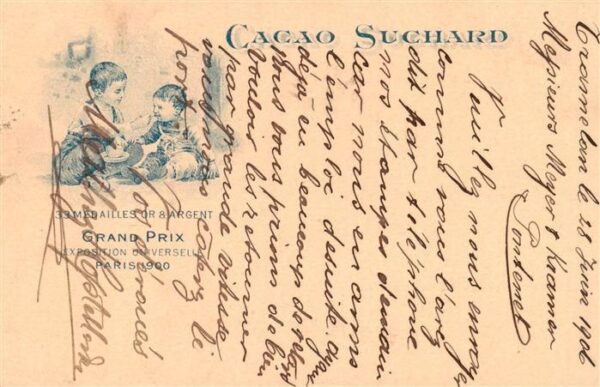 CACAO SUCHARD
33 MÉDAILLES OR & ARGENT
GRAND PRIX
EXPOSITION UNIVERSELLE
PARIS 1900
Tramelan le 28 Juin 1906
Messieurs Meyer & Kramer
Fontenet
Veuillez nous envoyer
comme nous l'avez
dit par téléphone
nos étampes demain
car nous en avons
l'emploi de suite, ayant
déjà eu beaucoup de retard
Nous vous prions de bien
vouloir les retourner
par grande vitesse
le
port